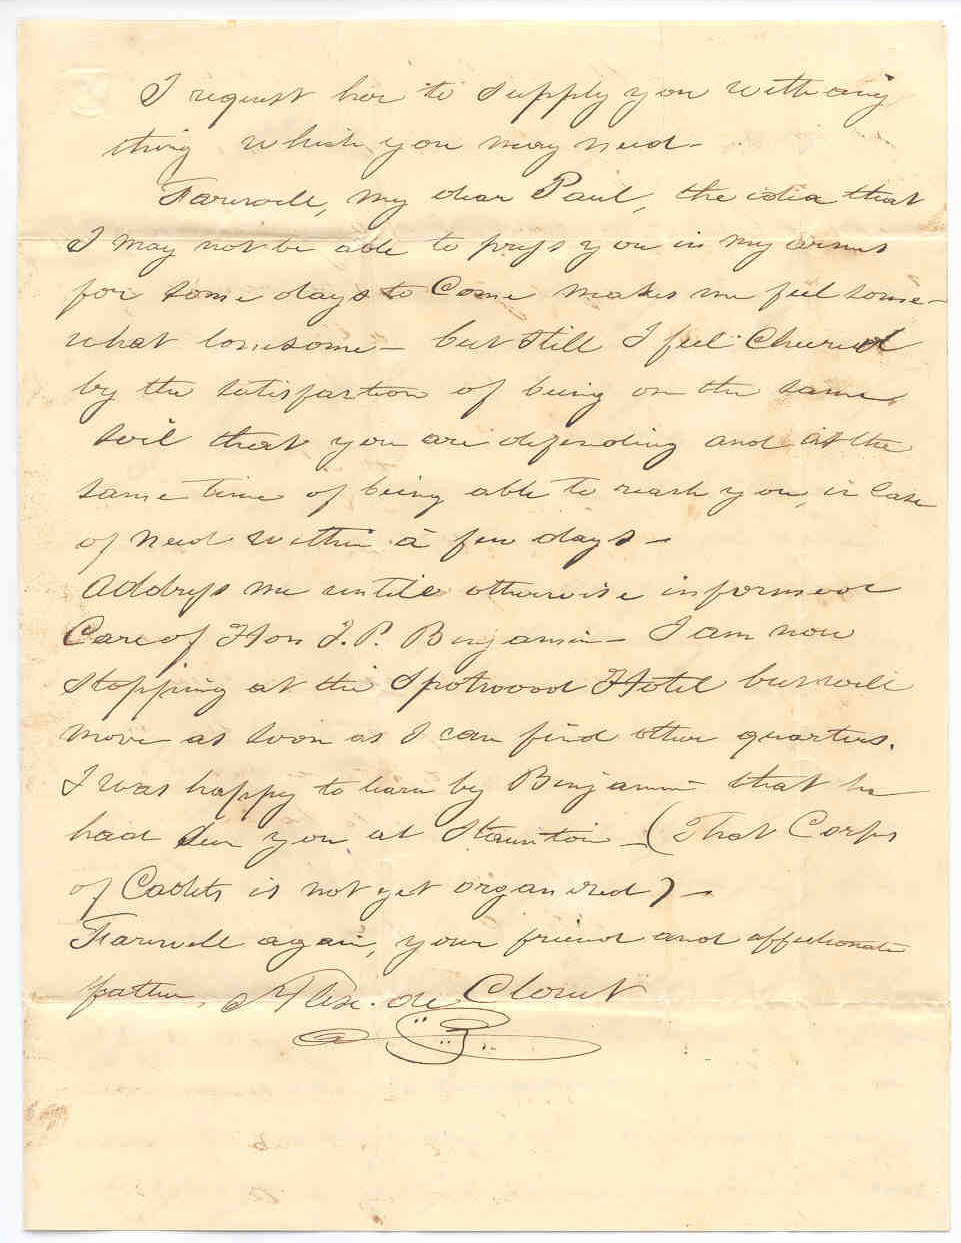 I request her to supply you with any
thing which you may need-
Farewell, my dear Paul, the idea that
I may not be able to press you in my arms
for some days to Come makes me feel some-
what lonesome - but still I feel Cheered
by the satisfaction of being on the same
soil that you are defending and at the
same time of being able to reach you, in Case
of need within a few days -
Address me until otherwise informed
Care of Hon J. P. Benjamin - I am now
stopping at the Spotswood Hotel but will
move as soon as I can find other quarters.
I was happy to learn by Benjamin that he
had seen you at Staunton - (That Corps
of Cadets is not yet organized) -
Farewell again, your friend and affectionate
father, Alex. de Clouet